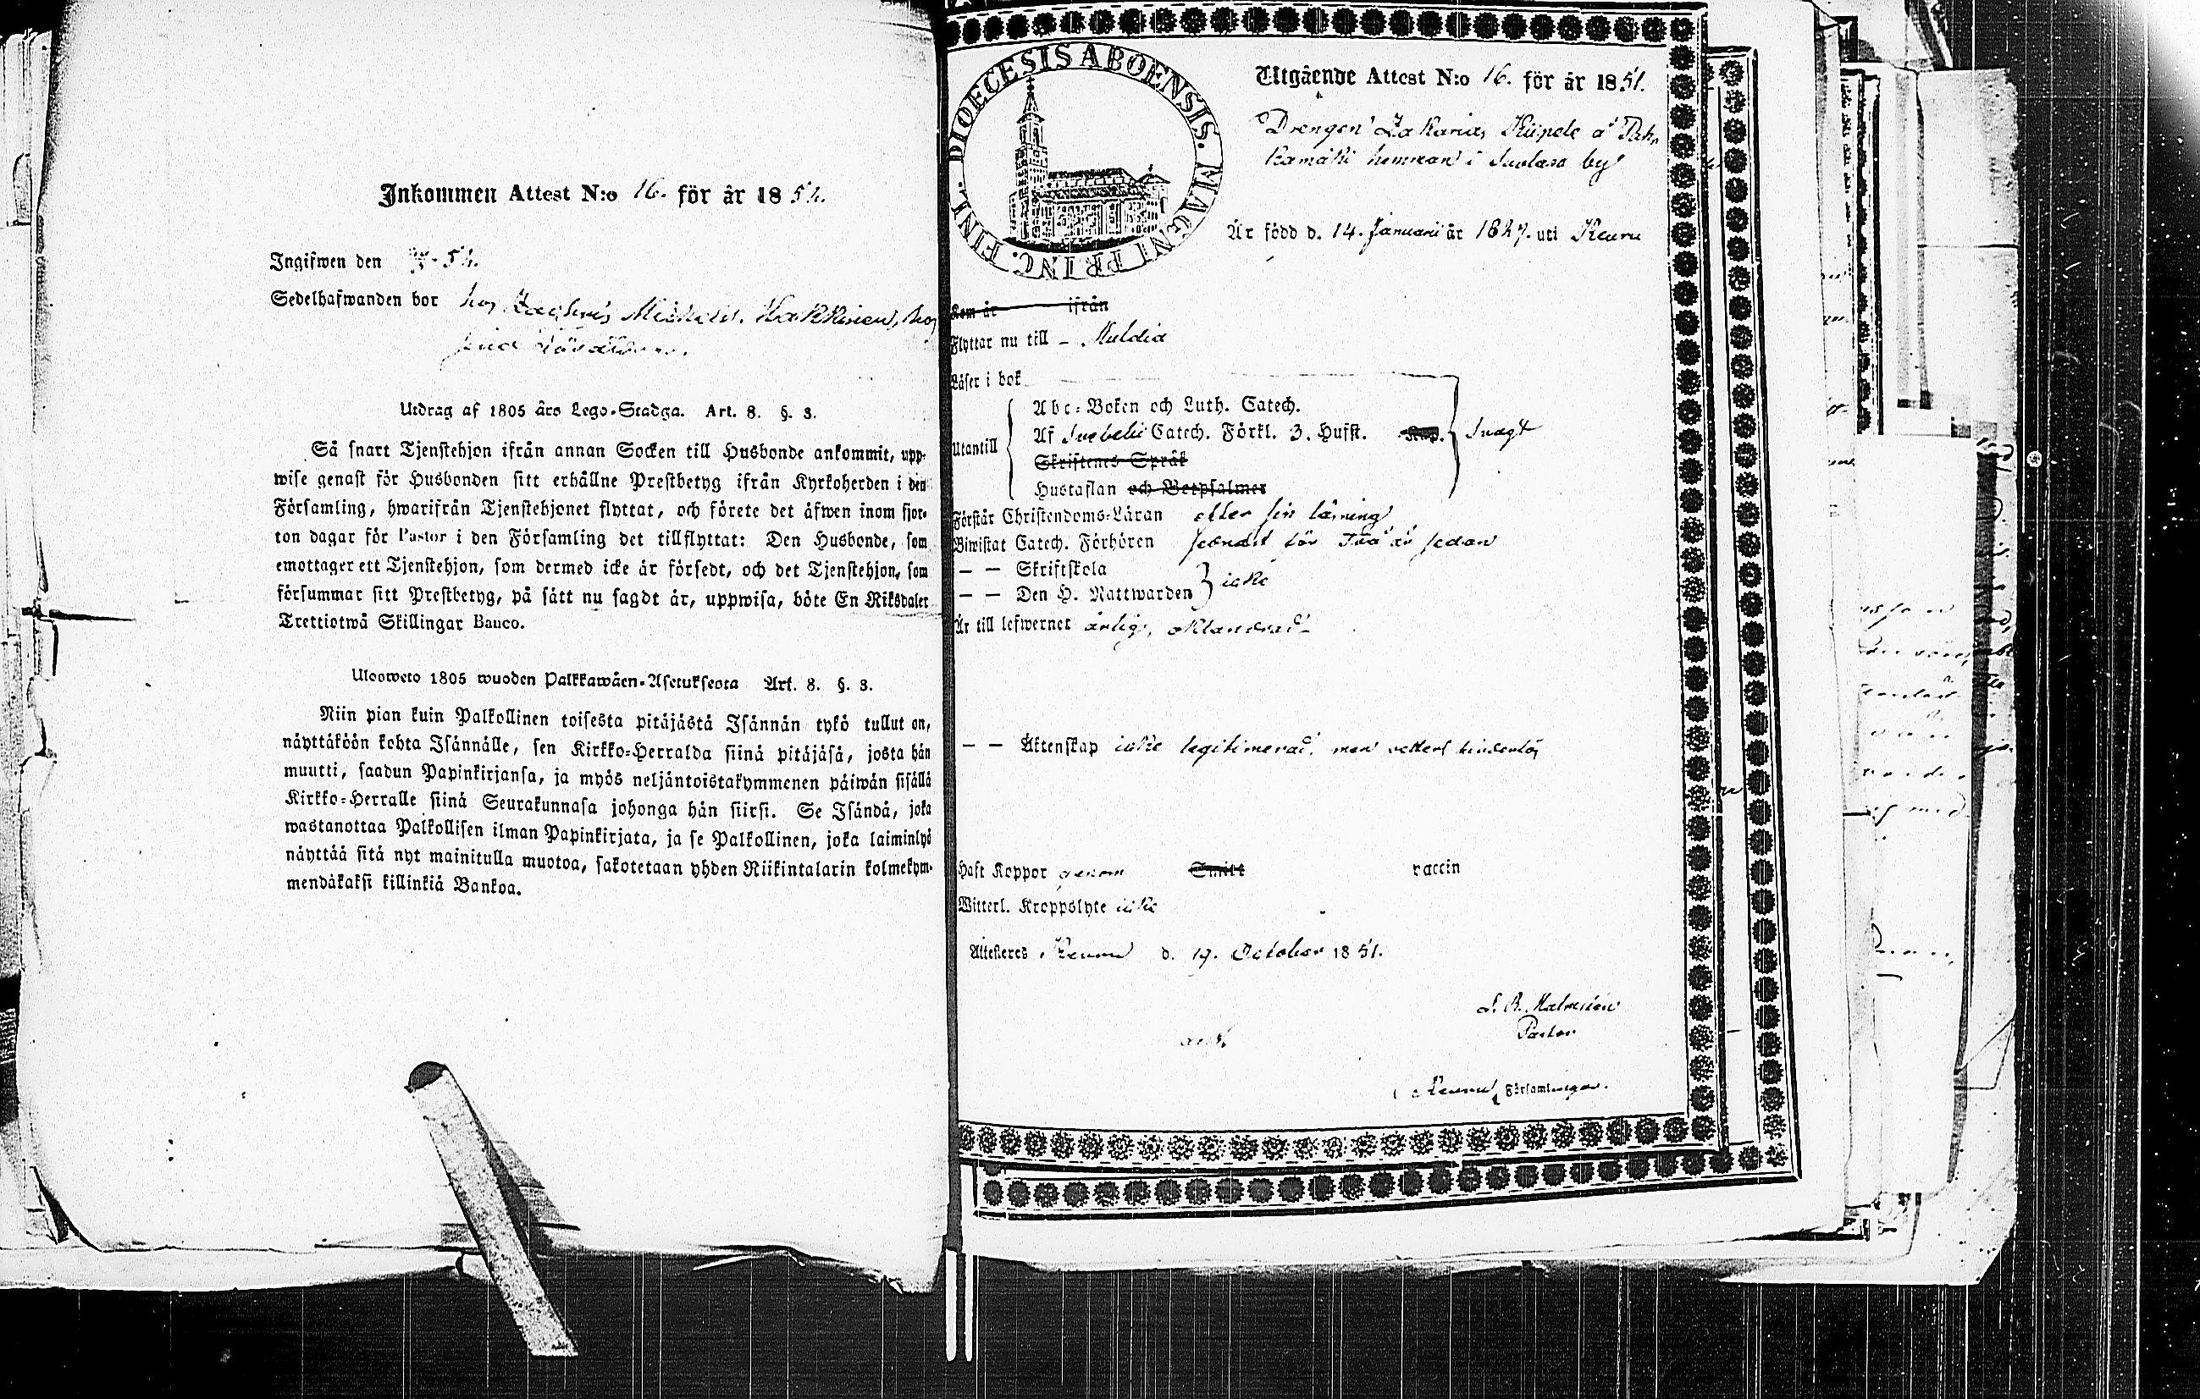 Inkommen Attest N:o 16. för år 1854.
Ingifwen den - 54.
Sedelhafwanden bor hos Michels. Hakkinen, hos
Utdrag af 1805 års Lego-Stadga. Art. 8. §. 3.
Så snart Tjenstehjon ifrån annan Socken till Husbonde ankommit, upp-
wise genast för Husbonden sitt erhållne Prestbetyg ifrån Kyrkoherden i den
Församling, hwarifrån Tjenstehjonet flyttat, och förete det äfwen inom fjor-
ton dagar för Pastor i den Församling det tillflyttat: Den Husbonde, som
emottager ett Tjenstehjon, som dermed icke är försedt, och det Tjenstehjon, som
försummar sitt Prestbetyg, på sätt nu sagdt är, uppwisa, böte En Riksdaler
Trettiotwå Skillingar Banco.
Ulosweto 1805 wuoden Palkkawäen-Asetuksesta Art. 8. §. 3.
Niin pian kuin Palkollinen toisesta pitäjästä Isännän tykö tullut on,
näyttäköön kohta Isännälle, sen Kirkko-Herralda siinä pitäjäsä, josta hän
muutti, saadun Papinkirjansa, ja myös neljäntoistakymmenen päiwän sisällä
Kirkko-Herralle siinä Seurakunnasa johonga hän siirsi. Se Isändä, joka
wastanottaa Palkollisen ilman Papinkirjata, ja se Palkollinen, joka laiminlyö
näyttää sitä nyt mainitulla muotoa, sakotetaan yhden Riikintalarin kolmekym-
mendäkaksi killinkiä Bankoa.
DIOECESIS ABOENSIS. MAGNI PRINC. FINL.
Utgående Attest N:o 16. för år 1851.
Drengen Zakarias Kiipele å Pah-
kamäki hemman i Suolasa by
Är född d. 14. Januarii år 1827. uti Keuru
Kom år ifrån
Flyttar nu till - Muldia
Läser i bok
Utantill
Abc-Boken och Luth. Catech.
Af Svebelii Catech. Förkl. 3. Hufst. Kap. Svagt
Skriftenes Språk
Hustaflan och Botpsalmer
Förstår Christendoms-Läran efter sin läsning
Biwistat Catech. Förhören senast för två år sedan
— — Skriftskola
— — Den H. Nattwarden icke
Är till lefwernet ärlig, oklandrad
— — Äktenskap icke legitimerad, men veterl. hinderlös
Haft Koppor genom Smitt vaccin
Witterl. Kroppslyte icke
Attesteres Keuru d. 19. October 1851.
Pastor
Keuru Församlingar.